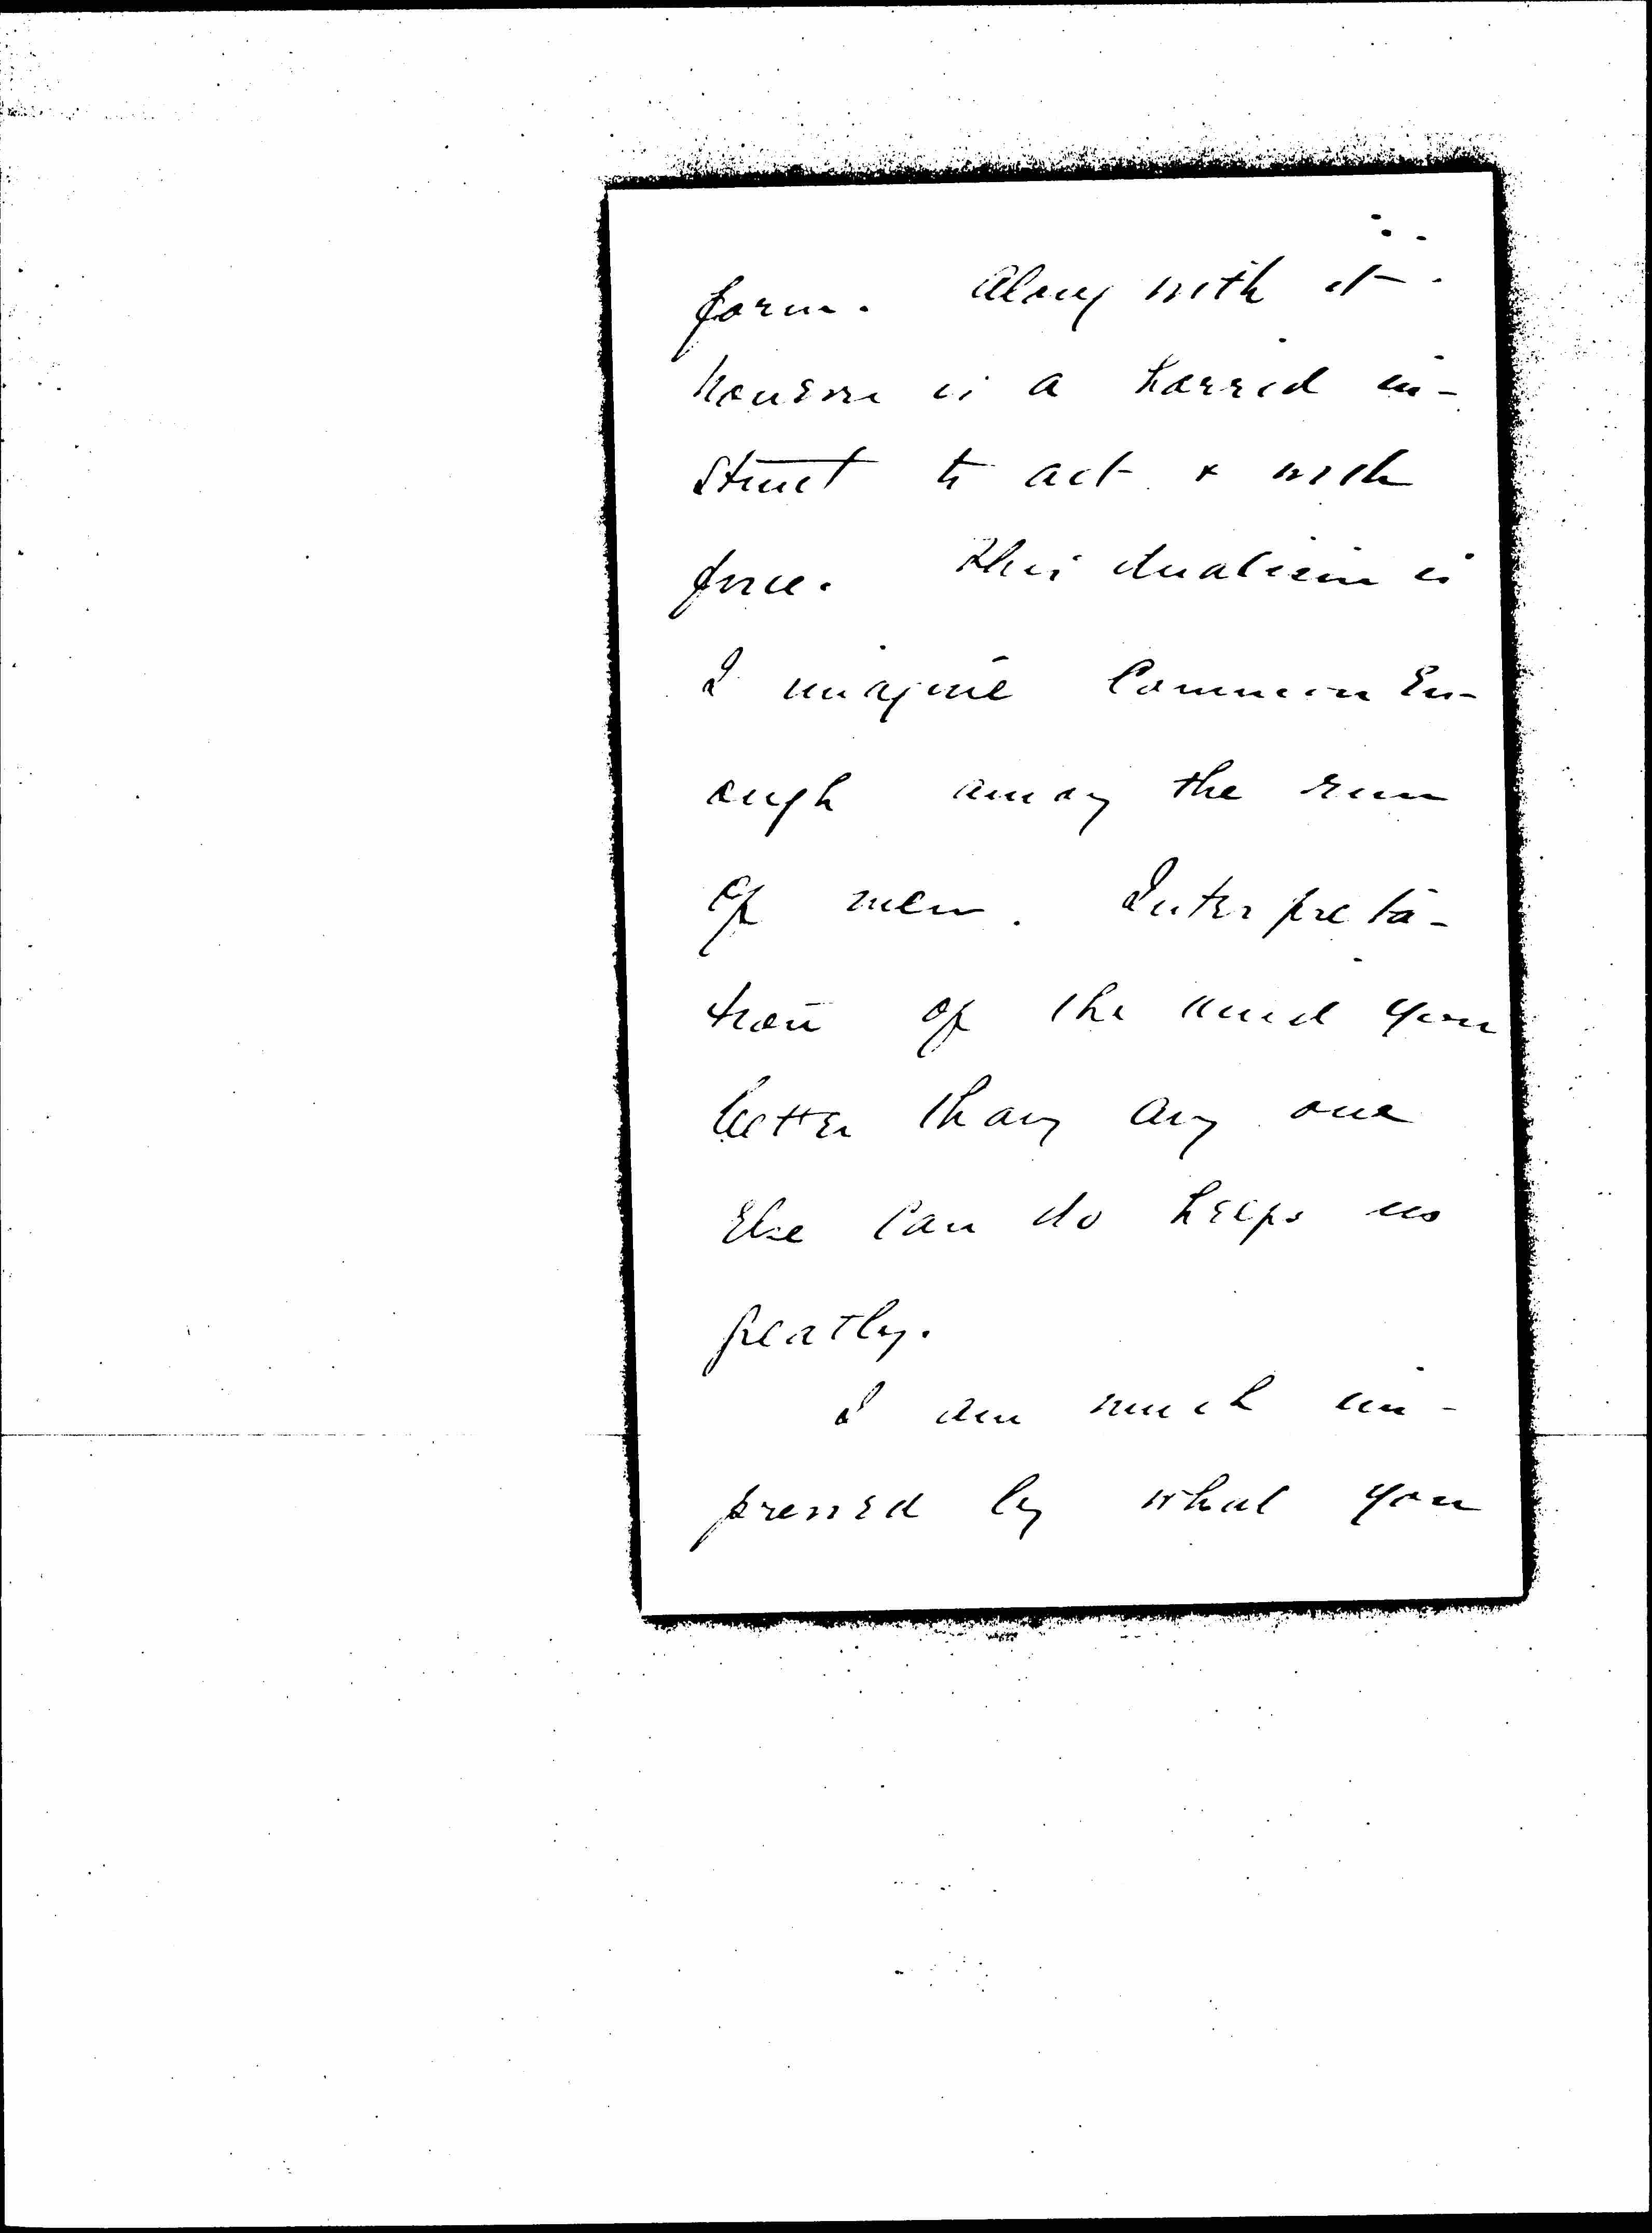 form. Along with it
however is a horrid in-
stinct to act & with
force. This dualism is
I imagine common en-
ough among the run
of men. Interpreta-
tion of the mind you
better than any one
else can do helps us
greatly.
I am much im-
pressed by what you